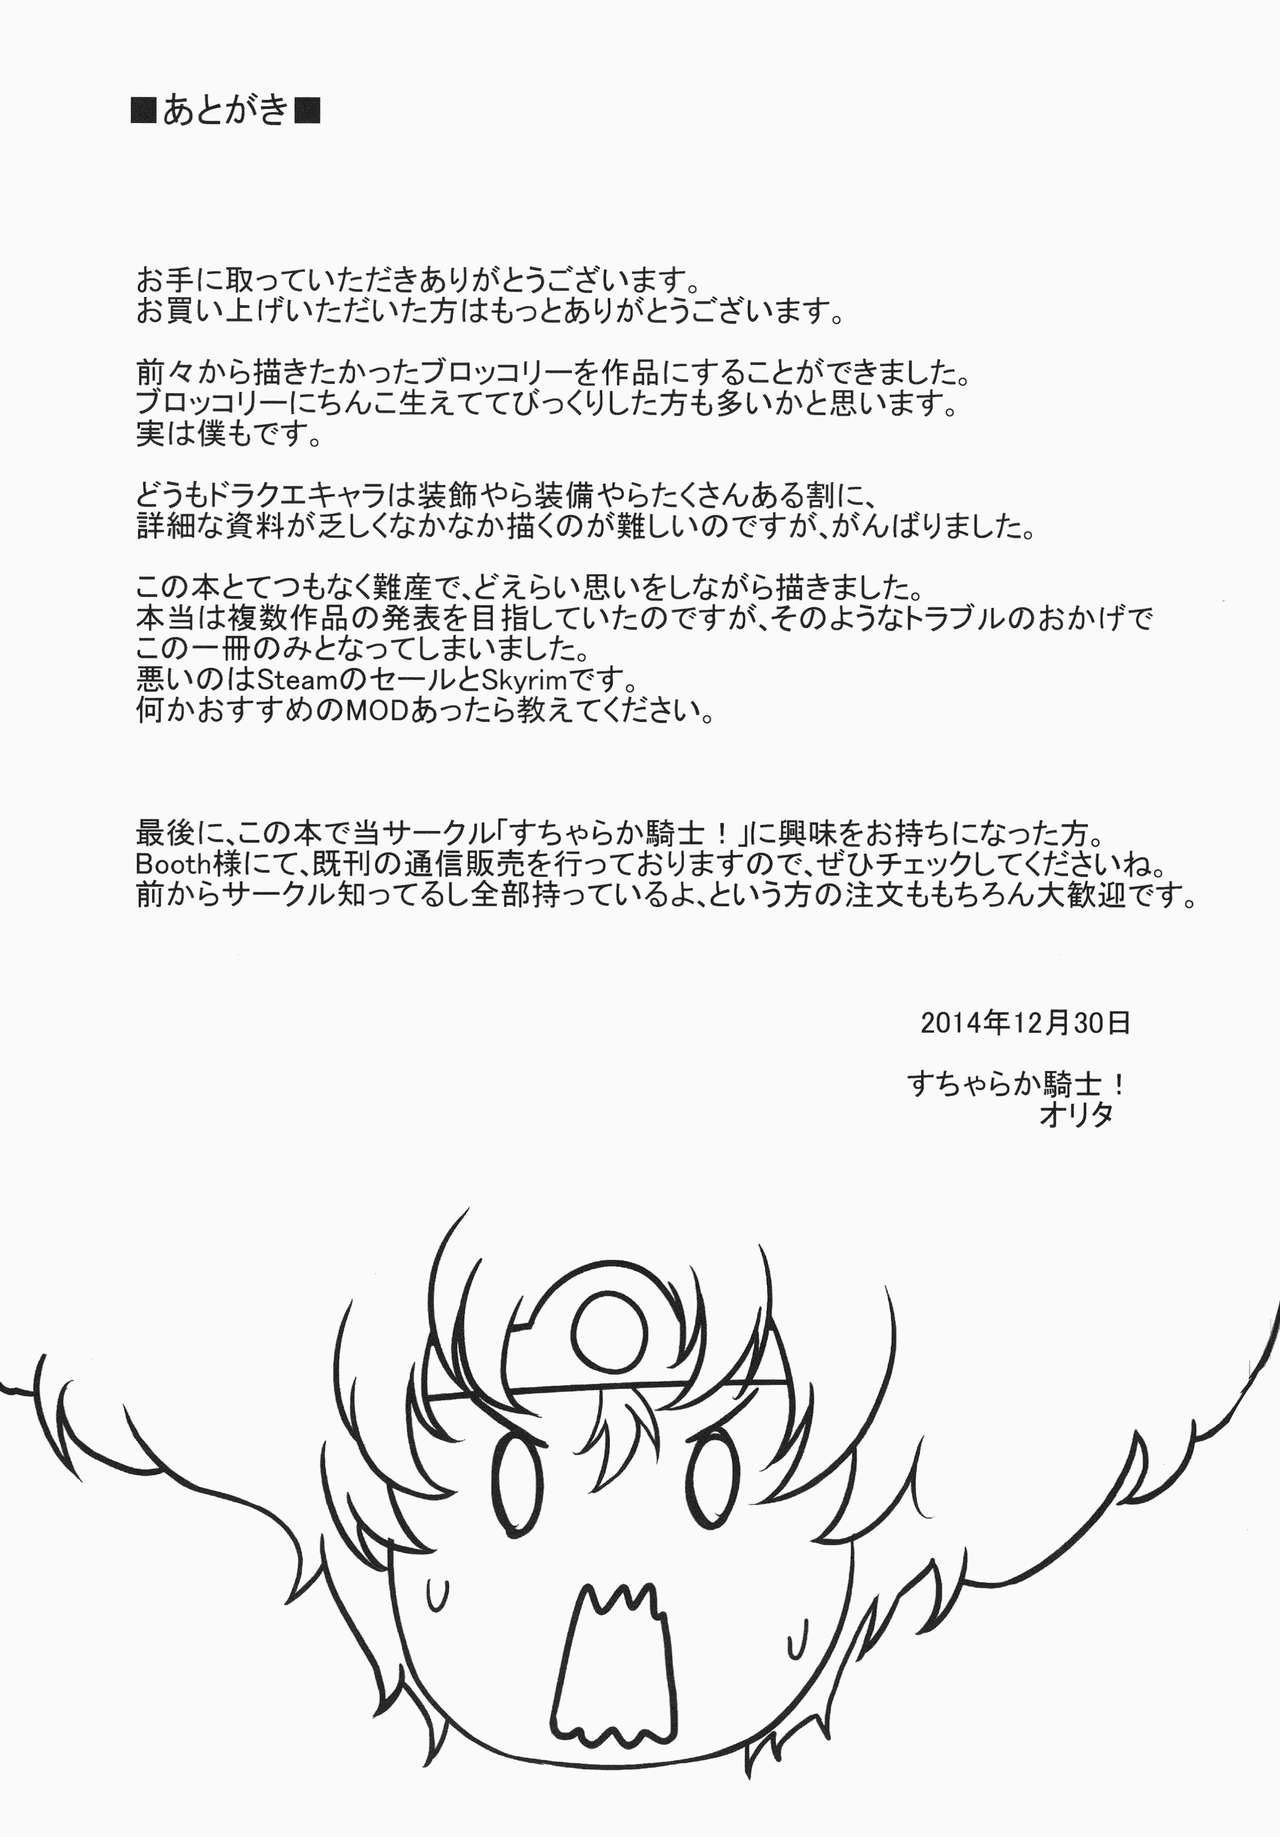 ■あとがき■
お手に取っていただきありがとうございます。
お買い上げいただいた方はもっとありがとうございます。
前々から描きたかったブロッコリーを作品にすることができました。
ブロッコリーにちんこ生えててびっくりした方も多いかと思います。
実は僕もです。
どうもドラクエキャラは装飾やら装備やらたくさんある割に、
詳細な資料が乏しくなかなか描くのが難しいのですが、がんばりました。
この本とてつもなく難産で、どえらい思いをしながら描きました。
本当は複数作品の発表を目指していたのですが、そのようなトラブルのおかげで
この一冊のみとなってしまいました。
悪いのはSteamのセールとSkyrimです。
何かおすすめのMODあったら教えてください。
最後に、この本で当サークル「すちゃらか騎士！」に興味をお持ちになった方。
Booth様にて、既刊の通信販売を行っておりますので、ぜひチェックしてくださいね。
前からサークル知ってるし全部持っているよ、という方の注文ももちろん大歓迎です。
2014年12月30日
すちゃらか騎士！
オリタ